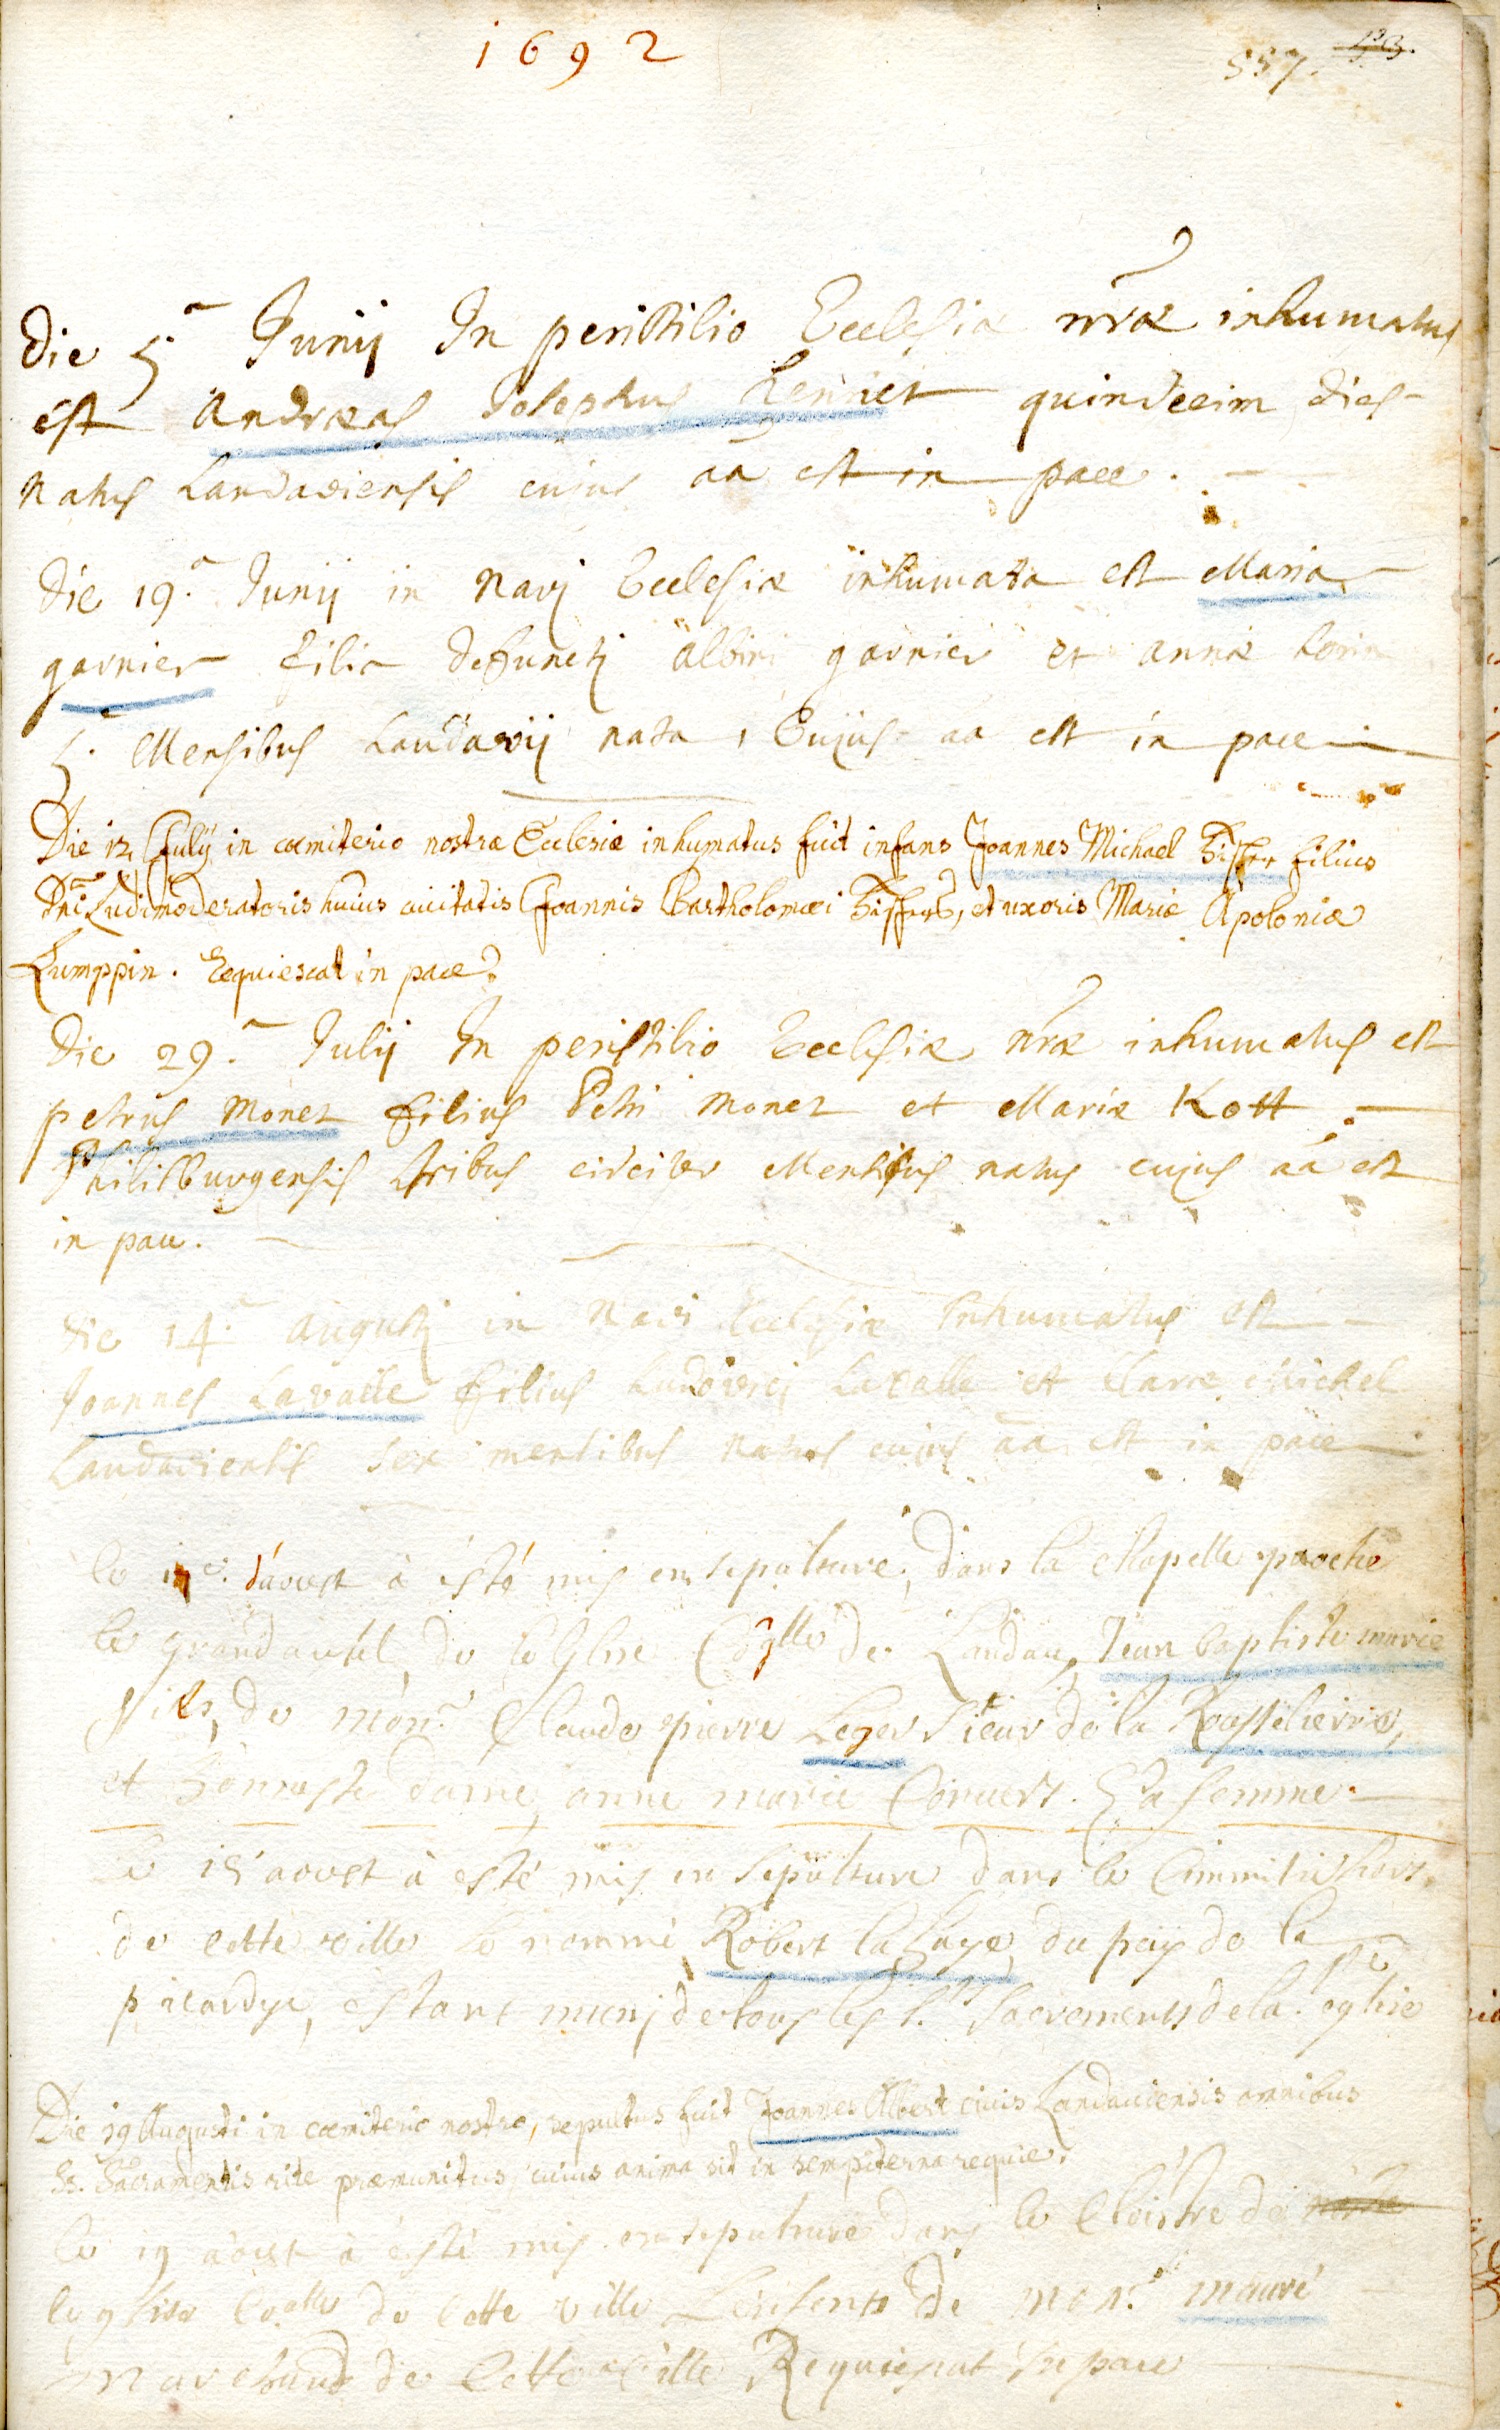 1692
557.
Die 5a Junij In peristilio Ecclesiæ nræ inhumatus
est Andreas Josephus quindecim dies
natus Landaviensis cujus aa est in pace.
Die 19.a Junij in navj Ecclesiæ inhumata est Maria
garnier filia defunctj albini garnier et annæ
5. Mensibus Landavij nata, Cujus aa est in pace
Die 12 Julÿ in cœmiterio nostræ Ecclesiæ inhumatus fuit infans Joannes Michael filius
Dni Ludimoderatoris huius civitatis Joannis Bartholomæi et uxoris Mariæ Apoloniæ
Lumppin. Requiescat in pace.
Die 29.a Julij In peristilio Ecclesiæ nræ inhumatus est
petrus Monet filius Petri Monet et Mariæ Kott
Philisburgensis tribus circiter Mensibus natus cujus aa est
in pace.
Die 14.a augustj in Navi Ecclesiæ Inhumatus est
Joannes Lavalle filius Ludovicj Lavalle et Claræ Michel
Landaviensis sex mensibus natus cujus aa est in pace
le 17e. d'aoust à esté mis en sepulture, dans la chapelle proche
le grand autel, de leglise Coglle de Landau, Jean baptiste marie
fils, de mon.r Claude pierre Leger Sieur de la Rousseliere,
et honneste dame, anne marie Sa femme.
le 18 aoust à esté mis en sepulture dans le Cimmitie hors
de cette ville le nommé Robert la haye, du païs de la
picardye, estant munj de tous les S.ts Sacrements de la. eglise
Die 19 Augusti in cœmiterio nostro, sepultus fuit Joannes Albert civis Landaviensis omnibus
SS. Sacramentis rite præmunitus, cuius anima sit in sempiterna requie.
le 19 aoust à esté mis en sepulture dans le Cloistre de
leglise de Cette ville Lenfent de mon.r mauré
Marchand de Cette ville Requiescat In pace